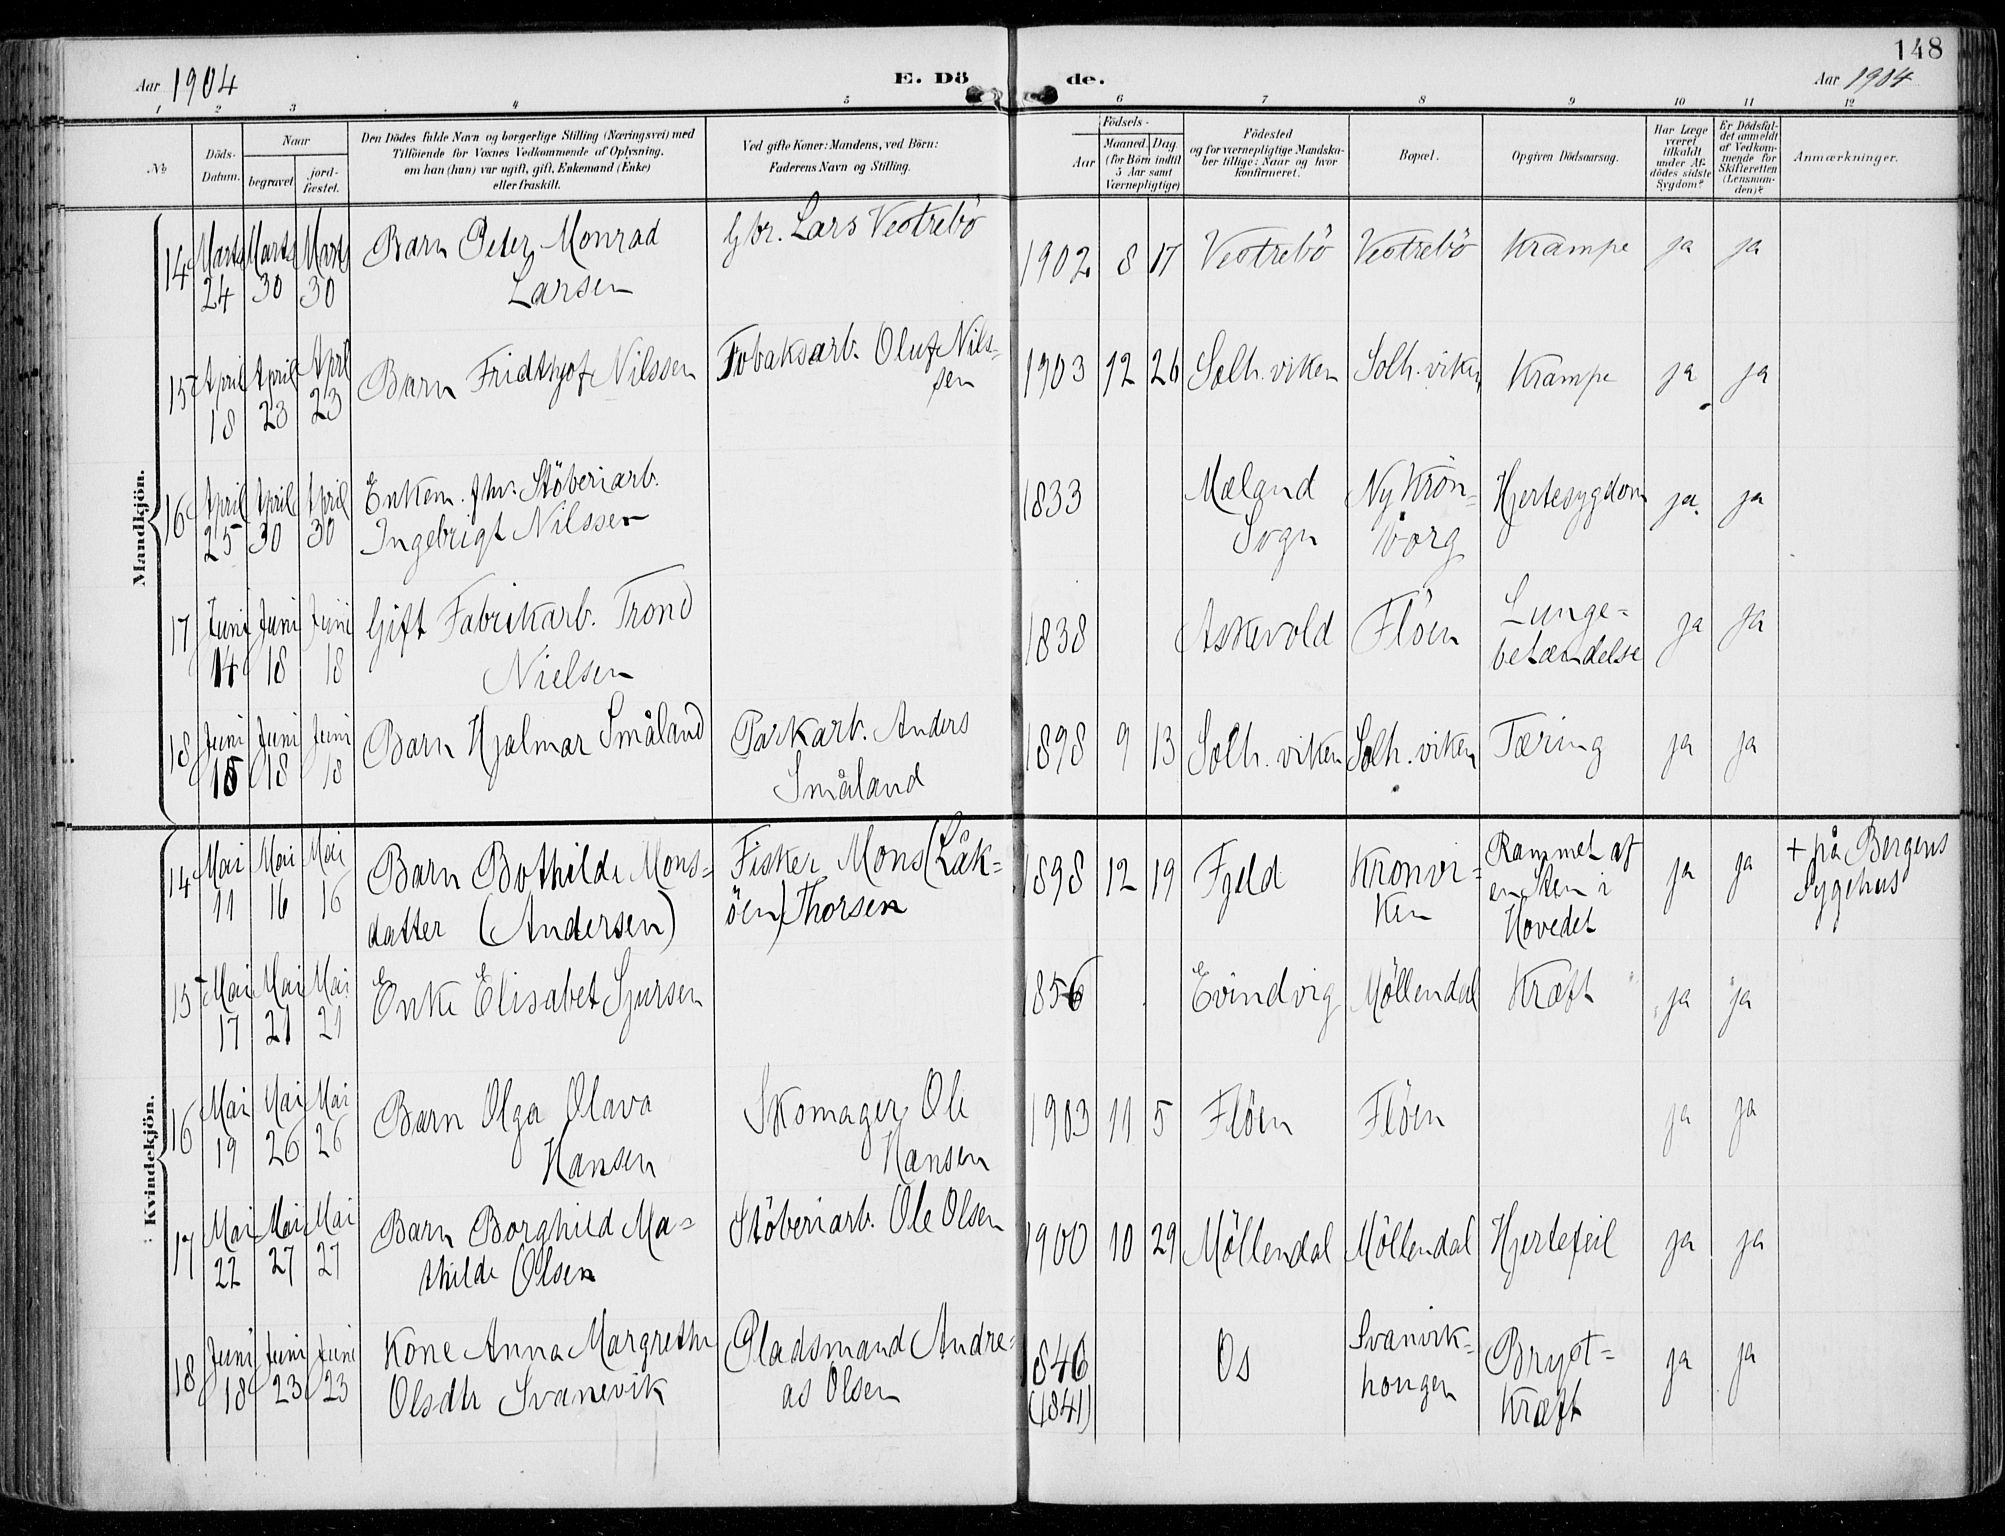 148
Aar 1904 E. Dö de. Aar 1904
1 2 3 4 5 6 7 8 9 10 11 12
No.
Döds-
Datum.
Naar
begravet.
jord-
fæstet.
Den Dödes fulde Navn og borgerlige Stilling (Næringsvei) med
Tilföiende for Voxnes Vedkommende af Oplysning,
om han (hun) var ugift, gift, Enkemand (Enke)
eller fraskilt.
Ved gifte Koner: Mandens, ved Börn:
Faderens Navn og Stilling.
Födsels-
Aar
Maaned
(for Börn indtil
5 Aar samt
Værnepligtige)
Dag
Födested
og for værnepligtige Mandska-
ber tillige: Naar og hvor
konfirmeret.
Bopæl.
Opgiven Dödsaarsag.
Har Læge
været
tilkaldt
under Af-
dödes sidste
Sygdom?
Er Dödsfal-
det anmeldt
af Vedkom-
mende for
Skifteretten
(Lensman-
den)?
Anmærkninger.
Mandkjön.
14 Marts 24 Marts 30 Marts 30 Barn Peter Monrad
Larsen
Gbr. Lars Vestrebö
1902 8 17 Vestrebö Vestrebö Krampe ja ja
15 April 18 April 23 April 23 Barn Fridthjof Nilssen
Tobaksarb. Oluf Nils-
sen
1903 12 26 Solh. viken Solh. viken Krampe ja ja
16 April 25 April 30 April 30 Enkem. fhv. Stöberiarb.
Ingebrigt Nilssen
1833 Mæland
Sogn
Ny Krön-
borg
Hjertesygdom ja ja
17 Juni 14 Juni 18 Juni 18 Gift Fabrikarb. Trond
Nielsen
1838 Askevold Flöen Lunge-
betændelse
ja ja
18 Juni 15 Juni 18 Juni 18 Barn Hjalmar Småland
Parkarb. Anders
Småland
1898 9 13 Solh. viken Solh. viken Tæring ja ja
Kvindekjön.
14 Mai 11 Mai 16 Mai 16 Barn Bothilde Mons-
datter (Andersen)
Fisker Mons (Låk-
öen) Thorsen
1898 12 19 Fjeld Kronvi-
ken
Rammet af
en Sten i
Hovedet
ja ja + på Bergens
Sygehus
15 Mai 17 Mai 21 Mai 21 Enke Elisabet Sjursen
1856 Evindvig Möllendal Kræft ja ja
16 Mai 19 Mai 26 Mai 26 Barn Olga Olava
Hansen
Skomager Ole
Hansen
1903 11 5 Flöen Flöen ja ja
17 Mai 22 Mai 27 Mai 27 Barn Borghild Ma-
thilde Olsen
Stöberiarb. Ole Olsen
1900 10 29 Möllendal Möllendal Hjertefeil ja ja
18 Juni 18 Juni 23 Juni 23 Kone Anna Margrethe
Olsdtr Svanevik
Pladsmand Andre-
as Olsen
1846
(1841)
Os Svanvik-
hougen
Bryst-
Kræft
ja ja